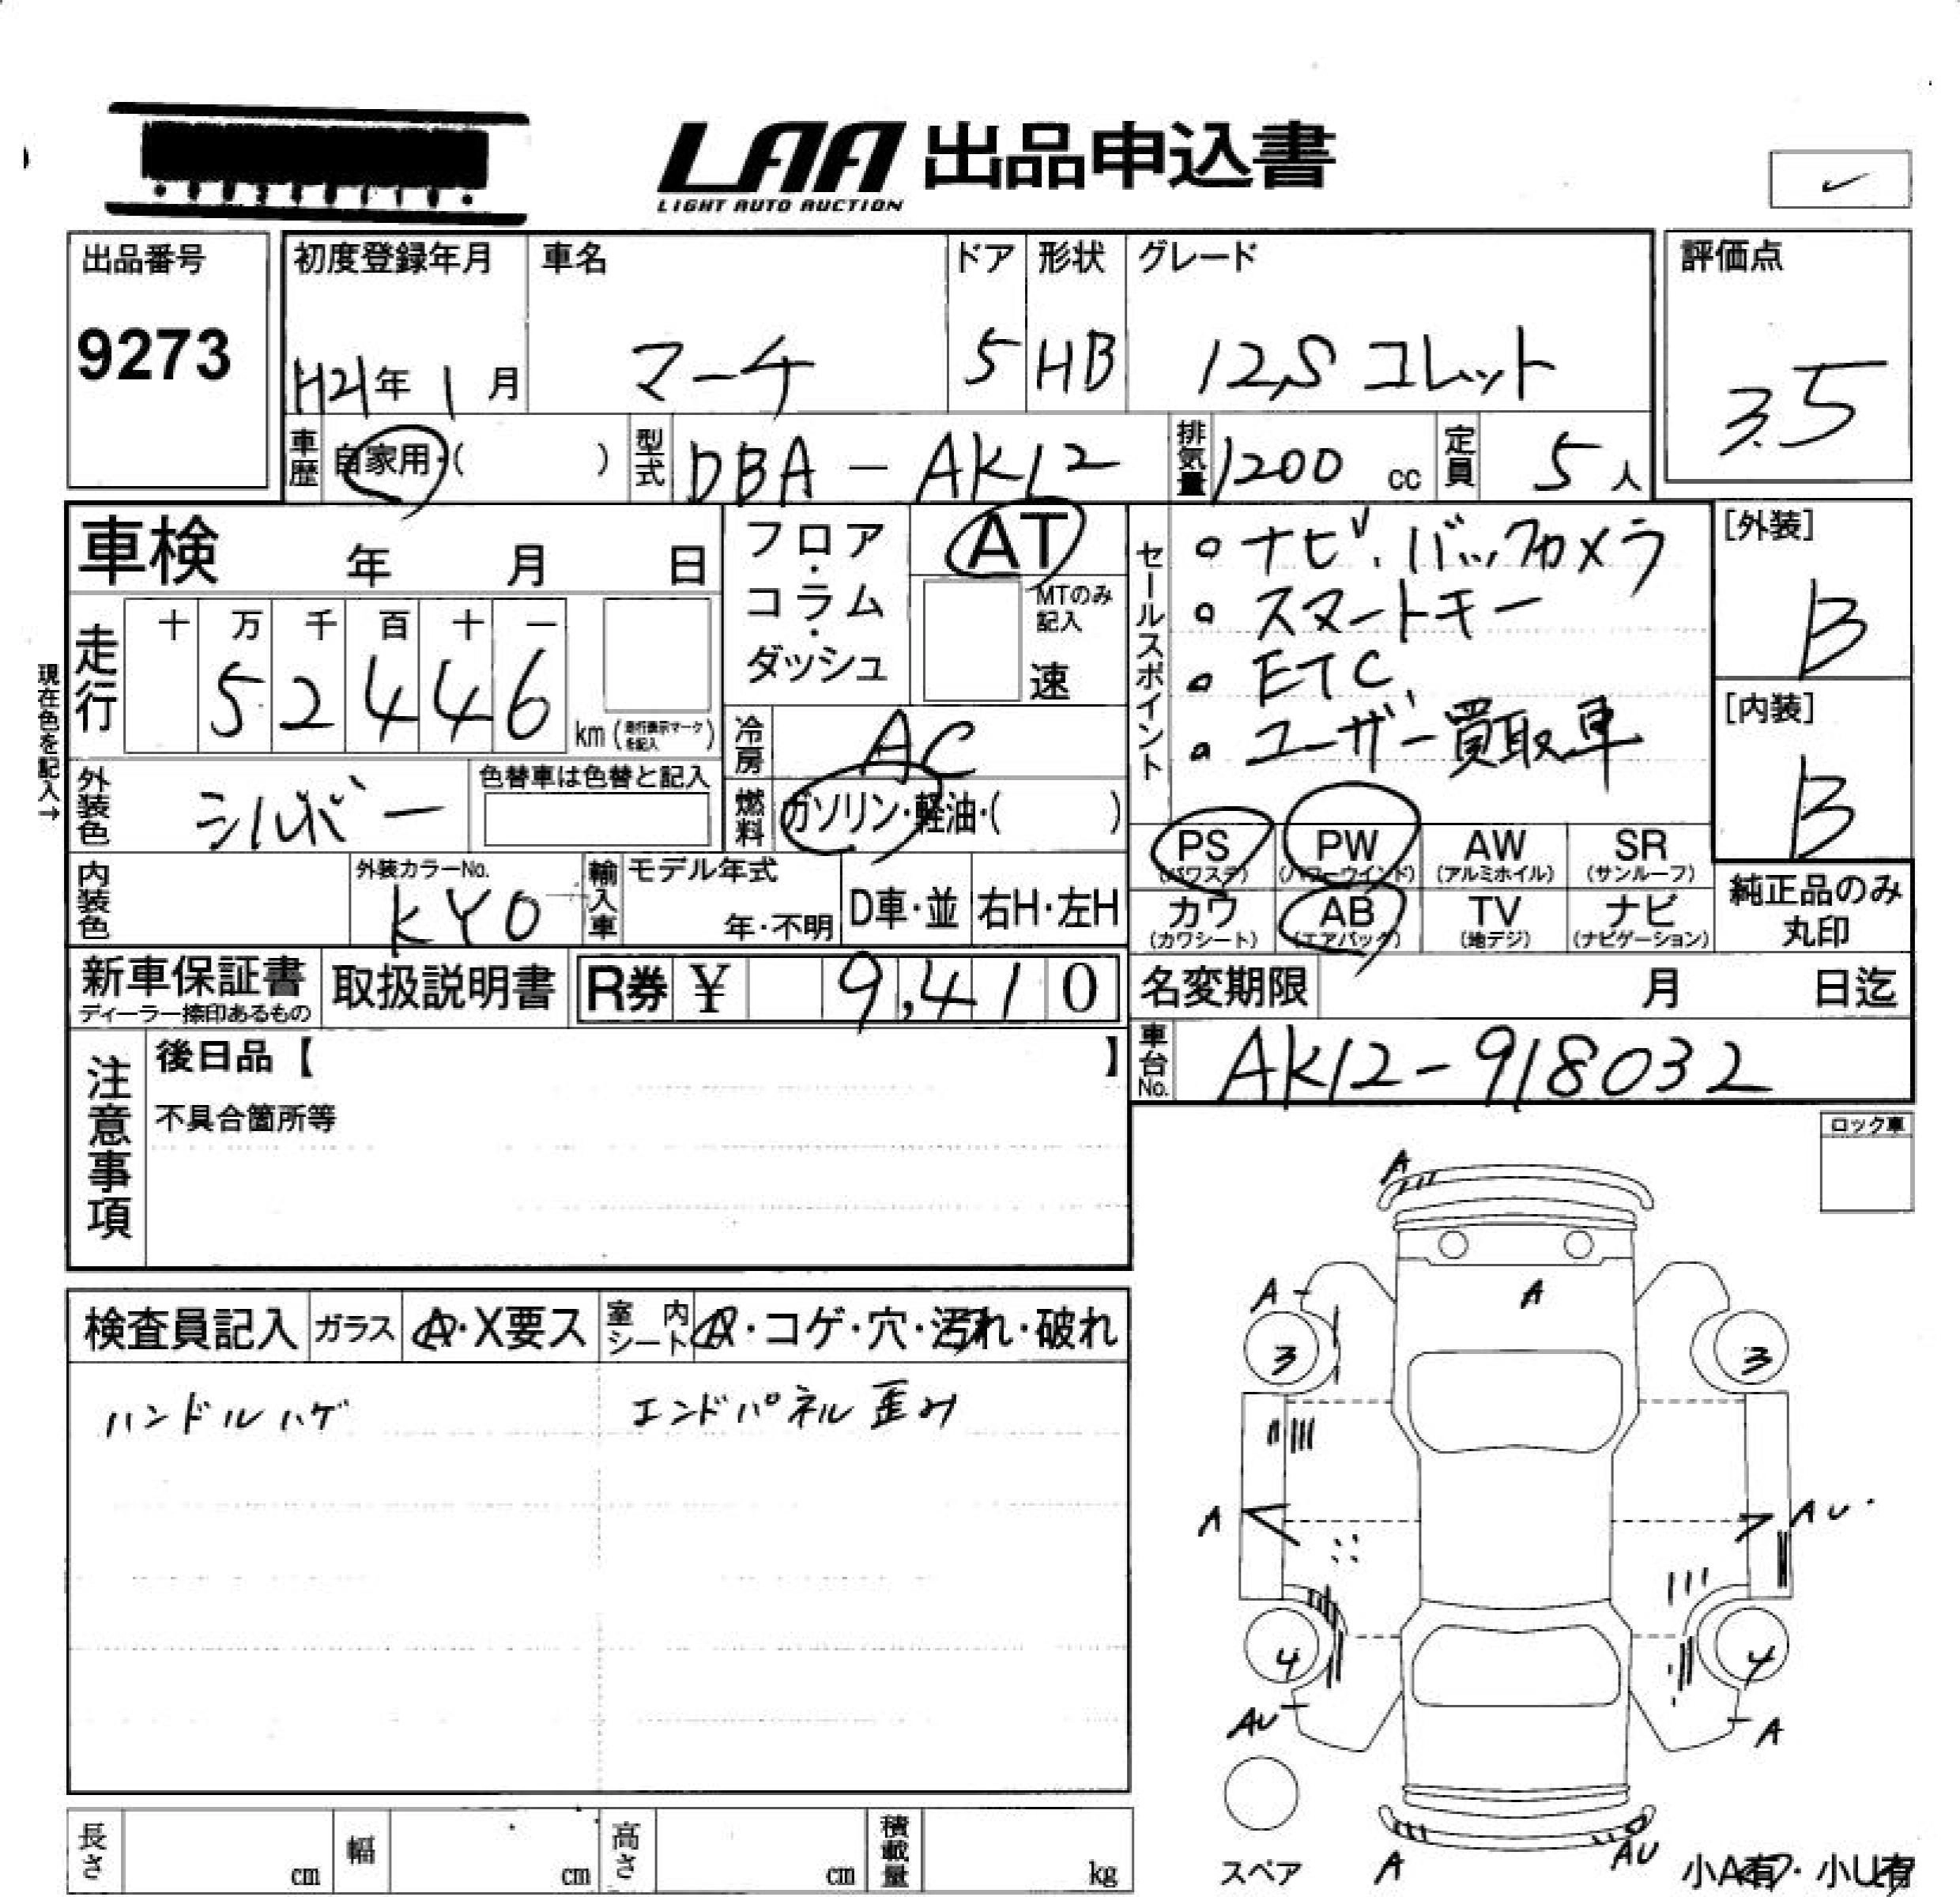 LAA 出品申込書
LIGHT AUTO AUCTION
出品番号
9273
初度登録年月
H21年 1月
車名
マーチ
ドア
5
形状
HB
グレード
12S コレット
評価点
3.5
車歴
自家用・( )
型式
DBA-AK12
排気量
1200 cc
定員
5人
車検 年 月 日
フロア・コラム・ダッシュ
AT
MTのみ記入
速
現在色を記入→
走行
十 万 千 百 十 一
5 2 4 4 6
km (走行表示マークを記入)
冷房
AC
燃料
ガソリン・軽油・( )
外装色
シルバー
色替車は色替と記入
内装色
外装カラーNo.
KY0
輸入車
モデル年式
年・不明
D車・並
右H・左H
セールスポイント
ナビ、バックカメラ
スマートキー
ETC
ユーザー買取車
[外装]
B
[内装]
B
PS PW AW SR
(パワステ) (パワーウインド) (アルミホイル) (サンルーフ)
カワ AB TV ナビ
(カワシート) (エアバック) (地デジ) (ナビゲーション)
純正品のみ
丸印
新車保証書
ディーラー捺印あるもの
取扱説明書
R券 ¥ 9,410
名変期限 月 日迄
車台No.
AK12-918032
注意事項
後日品【 】
不具合箇所等
ロック車
検査員記入
ガラス
A・X要ス
室内シート
・コゲ・穴・汚れ・破れ
ハンドルハゲ
エンドパネル歪み
A
A
A
3
3
A
AU
4
4
AU
A
スペア
A
AU
小A有・小U有
長さ cm
幅 cm
高さ cm
積載量 kg